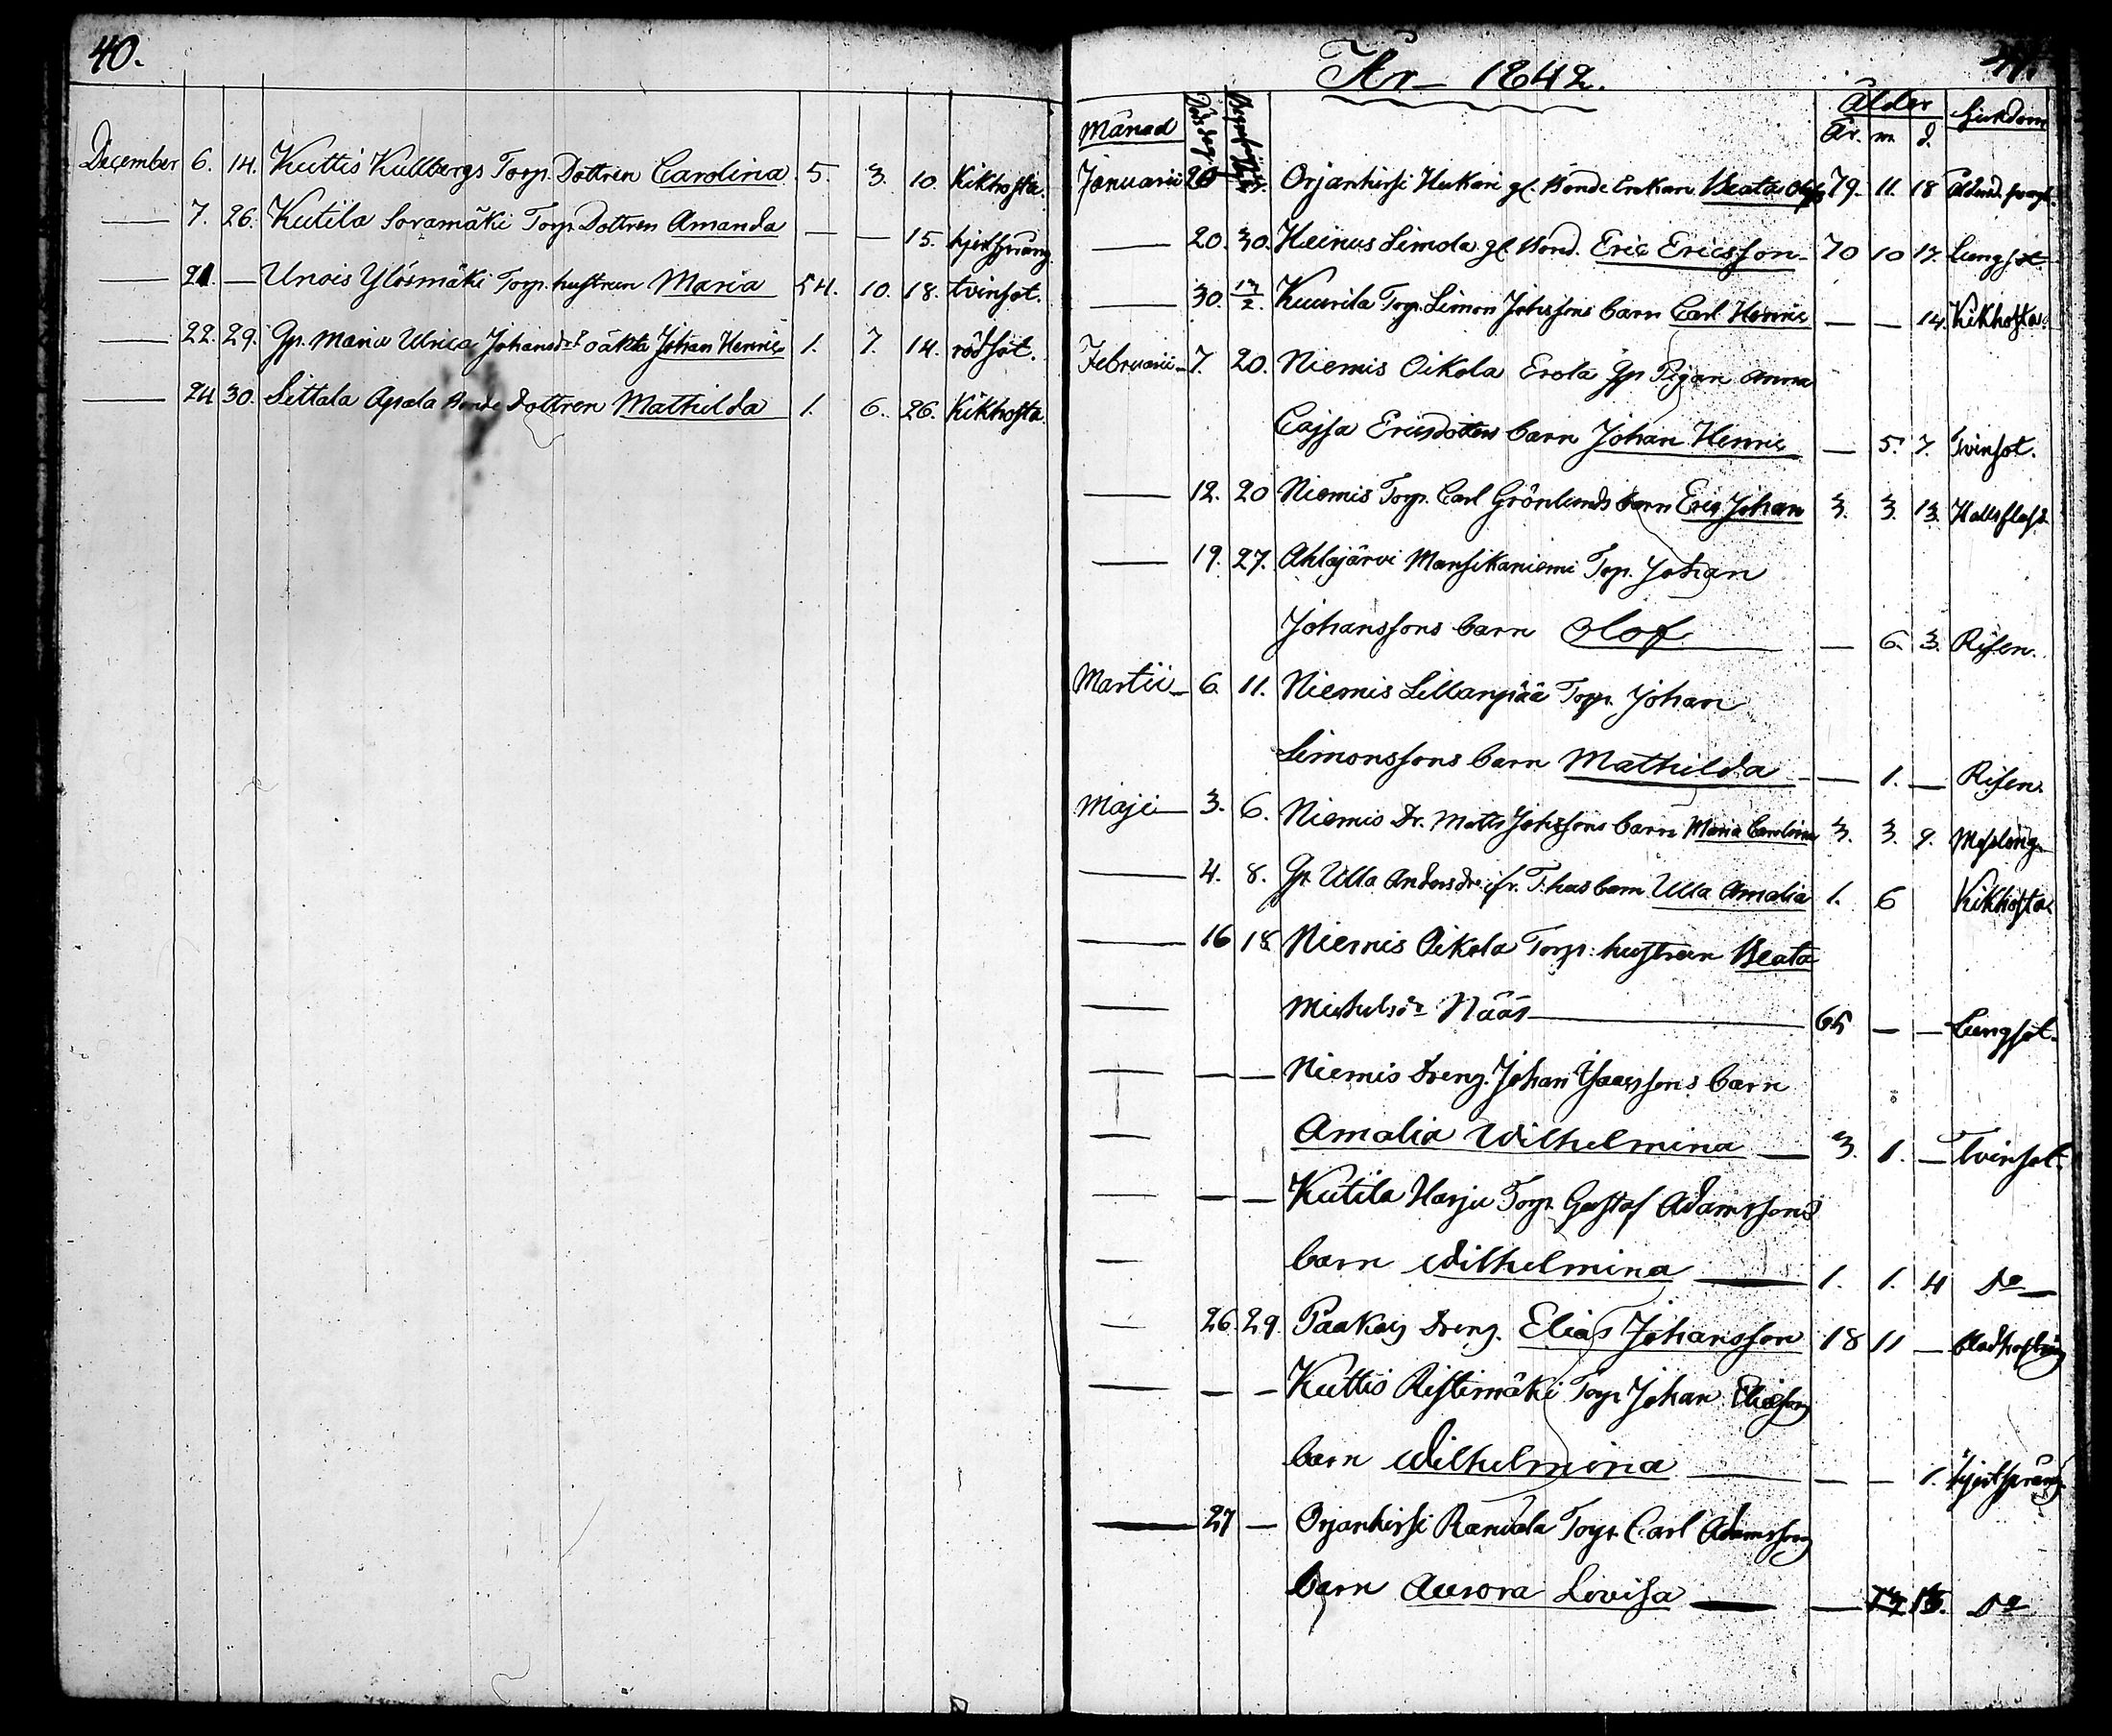 40.
December 6. 14. Kuttis Kullbergs Torp. Dottren Carolina 5. 3. 10 Kikhosta.
— 7. 26. Kutila Soramäki Torp Dottren Amanda — — 15. hjertsprång
— 21. — Unois Ylösmäki Torp. hustrun Maria 54. 10. 18. tvinsot.
— 22. 29. Gp. Maria Ulrica Johansdr oäkta Johan Henric 1. 7. 14. rödsot.
— 24 30. Sittala Apala Bonde Dottren Mathilda 1. 6. 26. Kikhosta.
41.
År 1842.
Månad Döds dag Begrafn. Ålder Sjukdom
År. m. d.
Januarii 20 Orjanhirsi Hukari gl. Bonde Enkan Beata 79. 11. 18
— 20. 30. Heinus Simola gl. Bond. Eric Ericsson 70 10 17. Lungsot
— 30. 13/2. Kuurila Torp. Simon Johssons barn Carl Henric — — 14. Kikhosta
Februarii 7. 20. Niemis Oikola Erola Gp Pigan Anna
Cajsa Ericsdotters barn Johan Henric — 5. 7. Tvinsot.
— 12. 20 Niemis Torp. Carl Grönlunds barn Eric Johan 3. 3. 13.
— 19. 27. Ahlajärvi Mansikaniemi Torp. Johan
Johanssons barn Olof — 6. 3. Risen.
Martii 6. 11. Niemis Sillanpää Torp. Johan
Simonssons barn Mathilda — 1. — Risen.
Maji 3. 6. Niemis Dr. Matts Johssons barn Maria Carolina 3. 3. 9. Messling
— 4. 8. Gp. Ulla Andersdr ifr. T.hus barn Ulla Amalia 1. 6 Kikhosta
— 16 18 Niemis Oikola Torp. hustrun Beata
— Michelsdr Nääs 65 — — Lungsot.
— — — Niemis Dreng. Johan Isacssons barn
— Amalia Wilhelmina 3. 1. — Tvinsot.
— — — Kutila Harju Torp. Gustaf Adamssons
— barn Wilhelmina 1. 1. 4 Do
— 26. 29 Paakois Dreng. Elias Johansson 18 11 — Blodhostning
— — — Kuttis Ristimäki Torp Johan Eliassons
barn Wilhelmina — — 1. hjertsprång
— 27 — Orjanhirsi Randala Torp. Carl Adamssons
barn Aurora Lovisa — Do